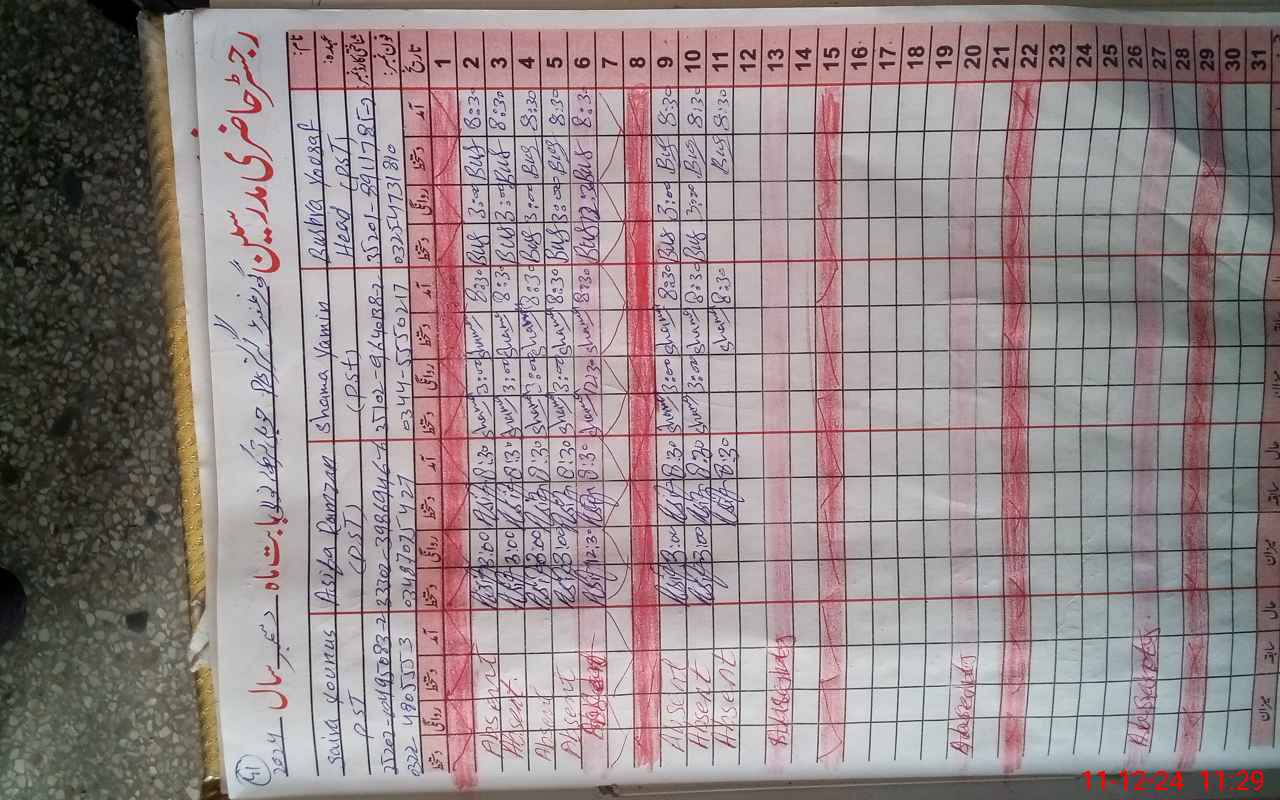 رجسٹر حاضری مدرسین گورنمنٹ گرلز بابت ماہ دسمبر سال 2024
41
نام:
Bushra Yousaf
Shama Yamin
Asifa Ramzan
Saira Younus
عہدہ:
Head (PST)
(PST)
(PST)
PST
شناختی کارڈ نمبر:
فون نمبر:
03254731810
0344-5550217
03497075427
0322-4905553
تاریخ آمد دستخط روانگی دستخط آمد دستخط روانگی دستخط آمد دستخط روانگی دستخط آمد دستخط روانگی دستخط
1
2 8:30 Bus 3:00 Bus 8:30 Sham 3:00 Sham 8:30 Asifa 3:00 Asifa Absent
3 8:30 Bus 3:00 Bus 8:30 Sham 3:00 Sham 8:30 Asifa 3:00 Asifa Absent
4 8:30 Bus 3:00 Bus 8:30 Sham 3:00 Sham 8:30 Asifa 3:00 Asifa Absent
5 8:30 Bus 3:00 Bus 8:30 Sham 3:00 Sham 8:30 Asifa 3:00 Asifa Absent
6 8:30 Bus 12:30 Bus 8:30 Sham 12:30 Sham 8:30 Asifa 12:30 Asifa Absent
7
8
9 8:30 Bus 3:00 Bus 8:30 Sham 3:00 Sham 8:30 Asifa 3:00 Asifa Absent
10 8:30 Bus 3:00 Bus 8:30 Sham 3:00 Sham 8:30 Asifa 3:00 Asifa Absent
11 8:30 Bus 8:30 Sham 8:30 Asifa Absent
12
13
14
15
16
17
18
19
20
21
22
23
24
25
26
27
28
29
30
31
میزان سابقہ حال میزان سابقہ حال
11-12-24 11:29